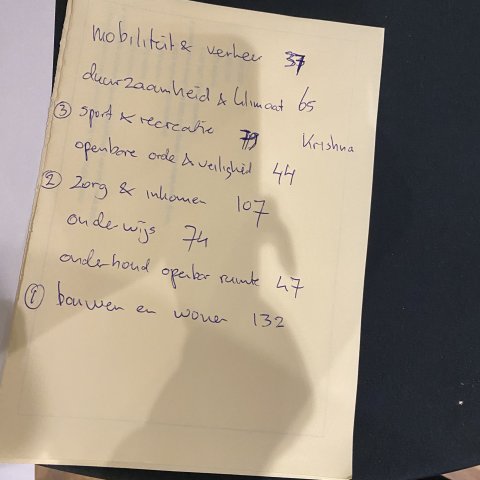 mobiliteit & verkeer 37
duurzaamheid & klimaat 65
③ sport & recreatie 79 Krishna
openbare orde & veiligheid 44
② zorg & inkomen 107
onderwijs 74
onderhoud openbar ruimte 47
① bouwen en wonen 132